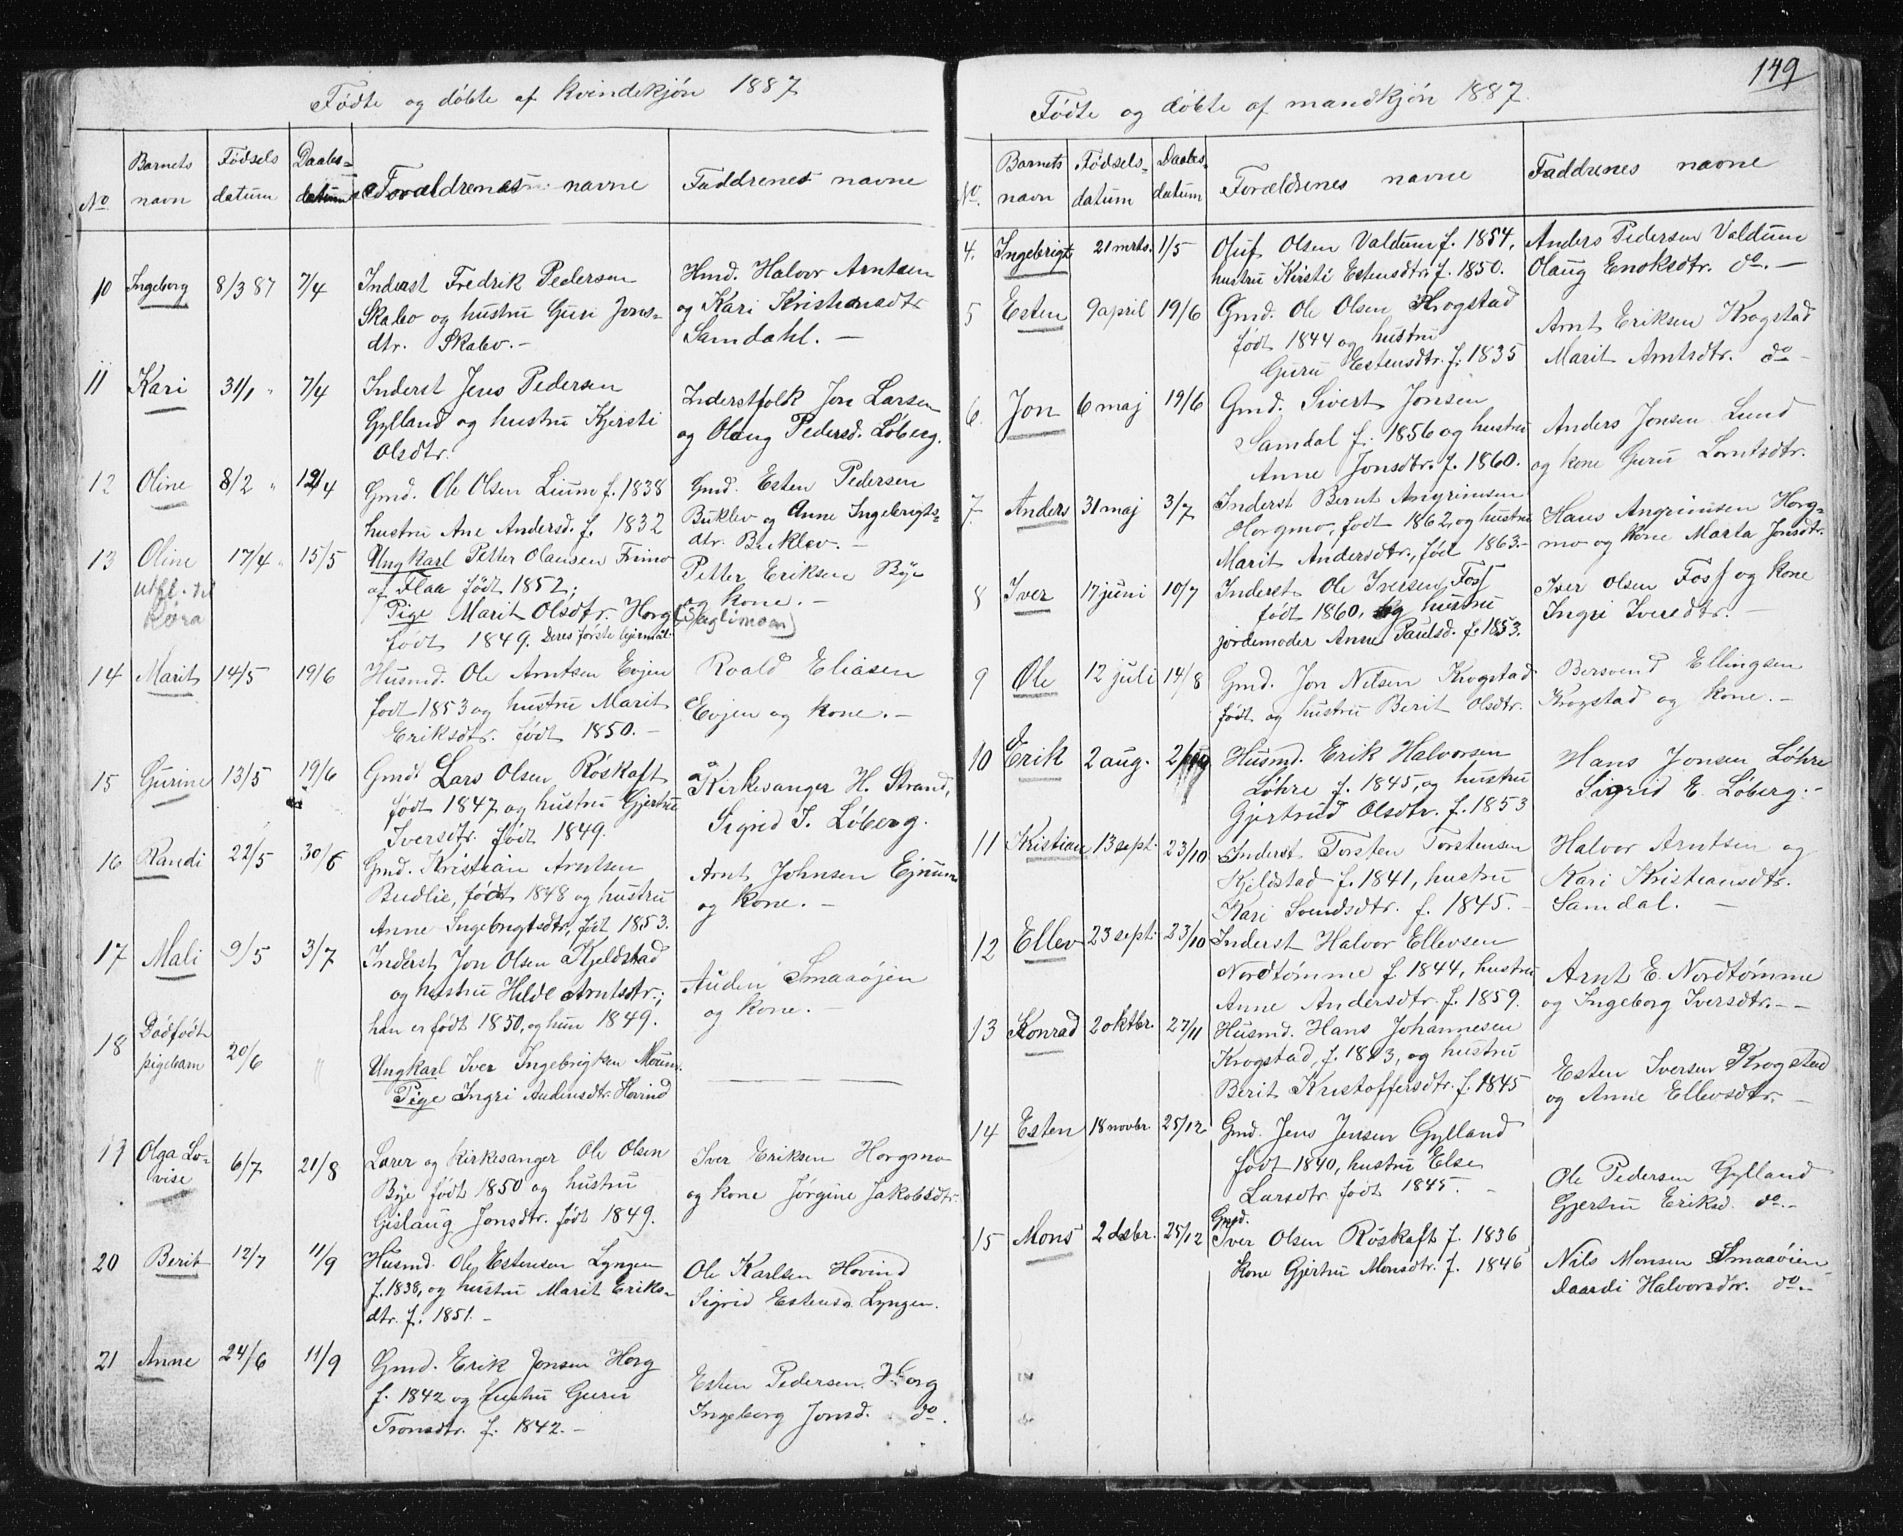 Fødte og døbte af kvindekjøn 1887
No
Barnets navn
Fødsels datum
Daabs- datum
Forældrenes navne
Faddrenes navne
10 Ingeborg 8/3 87 7/4 Inderst Fredrik Pedersen
Skabo og hustru Guri Jons-
dtr. Skabo.-
Hmd. Halvor Arntsen
og Kari Kristiansdtr
Samdahl. -
11 Kari 31/1 " 7/4 Inderst Jens Pedersen
Gylland og hustru Kjersti
Olsdtr.
Inderstfolk Jon Larsen
og Olaug Pedersd. Løberg.
12 Oline 8/2 " 12/4 Gmd. Ole Olsen Lium f. 1838
hustru Ane Andersd. f. 1832
Gmd. Esten Pedersen
Buklev og Anne Ingebrigts-
dtr. Buklev. -
13 Oline 17/4 " 15/5 Ungkarl Petter Olausen
af Flaa født 1852;
Pige Marit Olsdtr. Horg
født 1849. Deres første leiermaal.
Petter Eriksen Bye
og kone. -
14 Marit 14/5 19/6 Husmd. Ole Arntsen Evjen
født 1853 og hustru Marit
Eriksdtr. født 1850. -
Roald Eliasen
Evjen og kone. -
15 Gurine 13/5 19/6 Gmd. Lars Olsen Røskaft
født 1847 og hustru Gjertru
Iversdtr. født 1849.
Kirkesanger H. Strand,
Sigrid I. Løberg.
16 Randi 22/5 30/6 Gmd. Kristian Arntsen
Budlie, født 1848 og hustru
Anne Ingebrigtsdtr, føt 1853.
Arnt Johnsen Ejnum
og kone. -
17 Mali 9/5 3/7 Inderst Jon Olsen Kjeldstad
og hustru Hilde Arntsdtr.;
han er født 1850, og hun 1849.
Auden Smaaøjen
og kone. -
18 Dødfødt pigebarn 20/6 " Ungkarl Iver Ingebrigtsen
Pige Ingri Audensdtr. Hovind
19 Olga Lo-
vise 6/7 21/8 Lærer og kirkesanger Ole Olsen
Bye født 1850 og hustru
Gislaug Jonsdtr. født 1849.
Iver Eriksen Horgmo
og kone Jørgine Jakobsdtr.
20 Berit 12/7 11/9 Husmd. Ole Estensen Lyngen
f. 1838, og hustru Marit Eriks-
dtr. f. 1851. -
Ole Karlsen Hovind
Sigrid Estensd. Lyngen.
21 Anne 24/6 11/9 Gmd. Erik Jonsen Horg
f. 1842 og hustru Guru
Tronsdtr. f. 1842. -
Esten Pedersen Horg
Ingeborg Jonsd. do.
149
Fødte og døbte af mandkjøn 1887.
No.
Barnets navn
Fødsels- datum
Daabs- datum
Forældrenes navne
Faddrenes navne
4. Ingebrigt 21 mrts. 1/5 Oluf Olsen Valdum f. 1854,
hustru Kirsti Estensdtr. f. 1850.
Anders Pedersen Valdum
Olaug Enoksdtr. do. -
5 Esten 9 april 19/6 Gmd. Ole Olsen Krogstad
født 1844 og hustru
Guru Estensdtr. f. 1835
Arnt Eriksen Krogstad
Marit Arntsdtr. do -
6. Jon 6 maj 19/6 Gmd. Sivert Jonsen
Samdal f. 1856 og hustru
Anne Jonsdtr. f. 1860.
Anders Jonsen Lund
og kone Guru Lorntsdtr.
7. Anders 31 maj 3/7 Inderst Bernt Angrimsen
Horgmo, født 1862, og hustru
Marit Andersdtr., fød 1863.-
Hans Angrimsen Horg-
mo og kone Marta Jonsdtr.
8 Iver 17 juni 10/7 Inderst Ole Iversen Foss
født 1860, og hustru
jordemoder Anne Paulsd. f. 1853.
Iver Olsen Foss og kone
Ingri Iversdtr. -
9 Ole 12 juli 14/8 Gmd. Jon Nilsen Krogstad
født og hustru Berit Olsdtr.
Bersvend Ellingsen
Krogstad og kone. -
10 Erik 2 aug. Husmd. Erik Halvorsen
Løhre f. 1845, og hustru
Gjertrud Olsdtr. f. 1853
Hans Jonsen Løhre
Sigrid E. Løberg. -
11 Kristian 13 sept. 23/10 Inderst Torsten Torstensen
Kjeldstad f. 1841, hustru
Kari Svendsdtr. f. 1845. -
Halvor Arntsen og
Kari Kristiansdtr.
Samdal. -
12 Ellev 23 sept. 23/10 Inderst Halvor Ellevsen
Nordtømme f. 1844, hustru
Anne Andersdtr. f. 1859.
Arnt E. Nordtømme
og Ingeborg Iversdtr. - -
13 Konrad 2 oktbr. 27/11 Husmd. Hans Johannesen
Krogstad, f. 1843, og hustru
Berit Kristoffersdtr. f. 1845
Esten Iversen Krogstad
og Anne Ellevsdtr. -
14 Esten 18 novbr. 25/12 Gmd. Jens Jensen Gylland
født 1840, hustru Else
Larsdtr. født 1845. -
Ole Pedersen Gylland
Gjertru Eriksd. do. -
15 Mons 2 dsbr. 25/12 Gmd.
Iver Olsen Røskaft f. 1836
kone Gjertru Monsdtr. f. 1846
Nils Monsen Smaaøien
Halvorsdtr. do. -